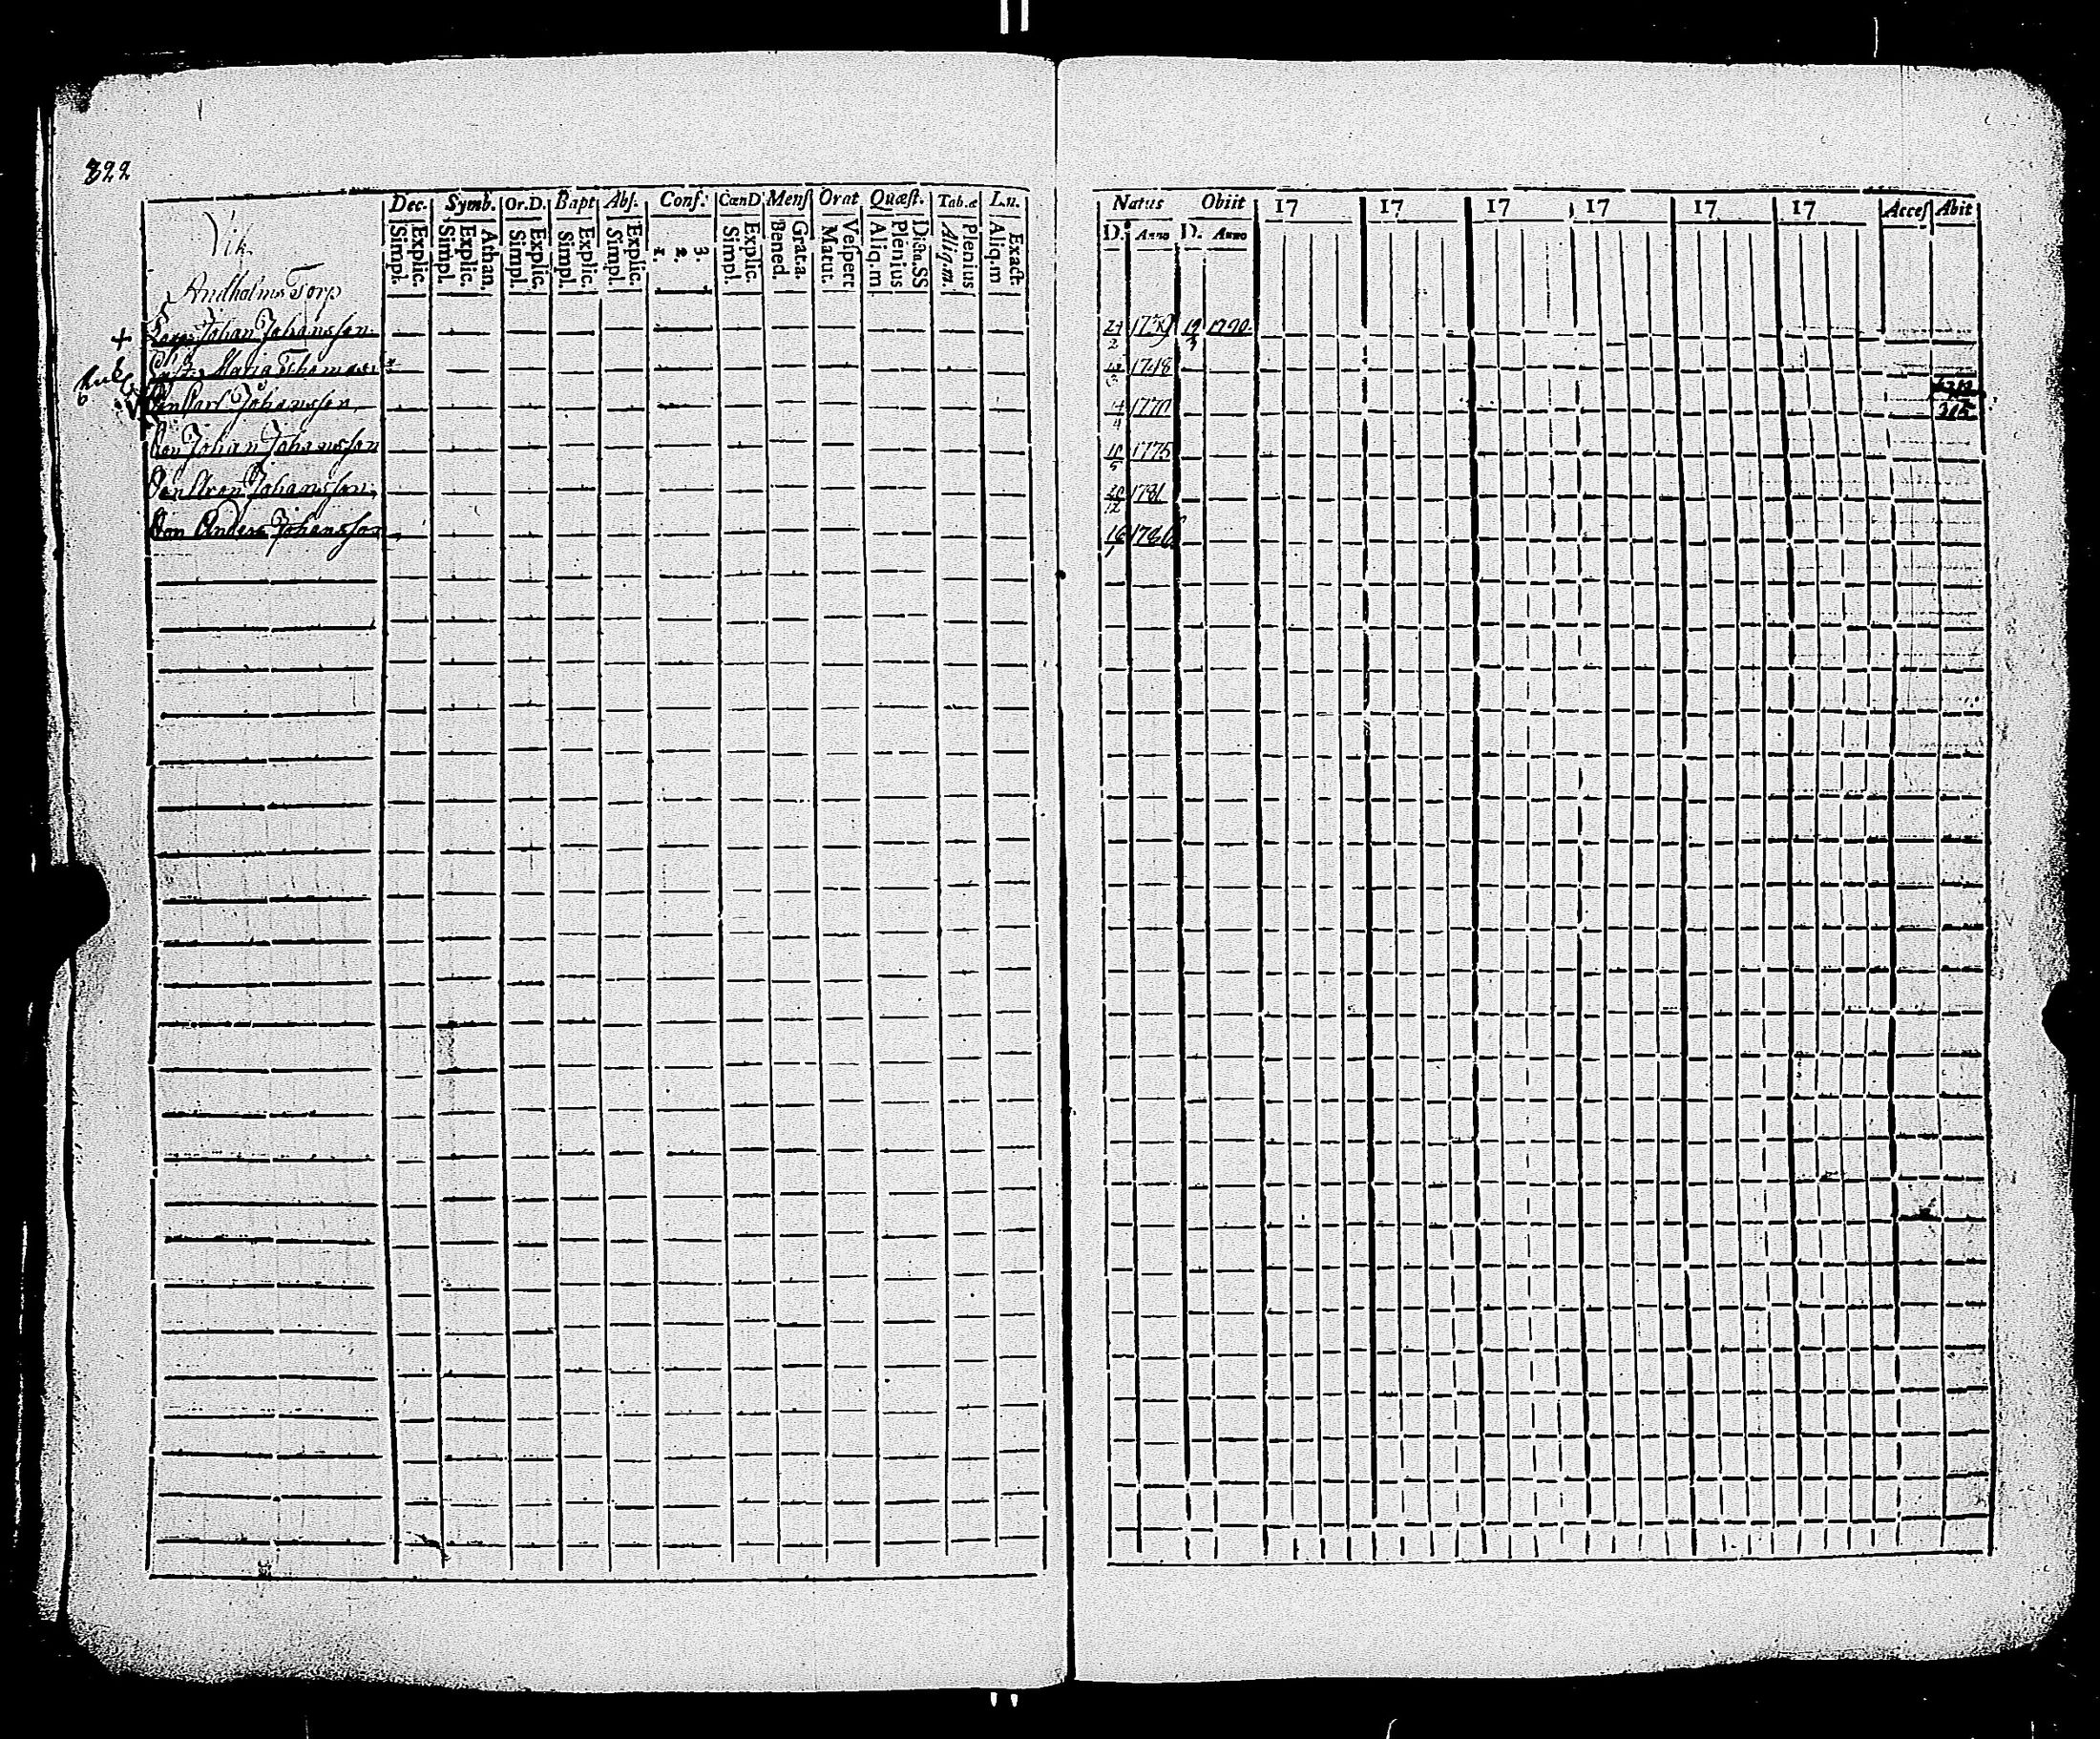 322
Dec. Symb. Or.D. Bapt Abs. Conf. CœnD Mens Orat Quæst. Tab.æ L.n. Natus Obiit 17 17 17 17 17 17 Acces Abit
Simpl. Explic. Simpl. Explic. Athan. Simpl. Explic. Simpl. Explic. Simpl. Explic. 1. 2. 3. Simpl. Explic. Bened. Grat.a. Matut. Vespert Aliq.m Plenius Dicta.SS Aliq.m. Plenius Aliq.m Exact. D. Anno D. Anno
Vik
Andholms Torp
+ Johan Johansson 24/2 1739 19 1790
Maria Thomas 1748
Son Carl Johansson 14/4 1770 305
Son Johan Johansson 10/5 1775
Son Aron Johansson 20/12 1781
Son Anders Johansson 16/1 1786